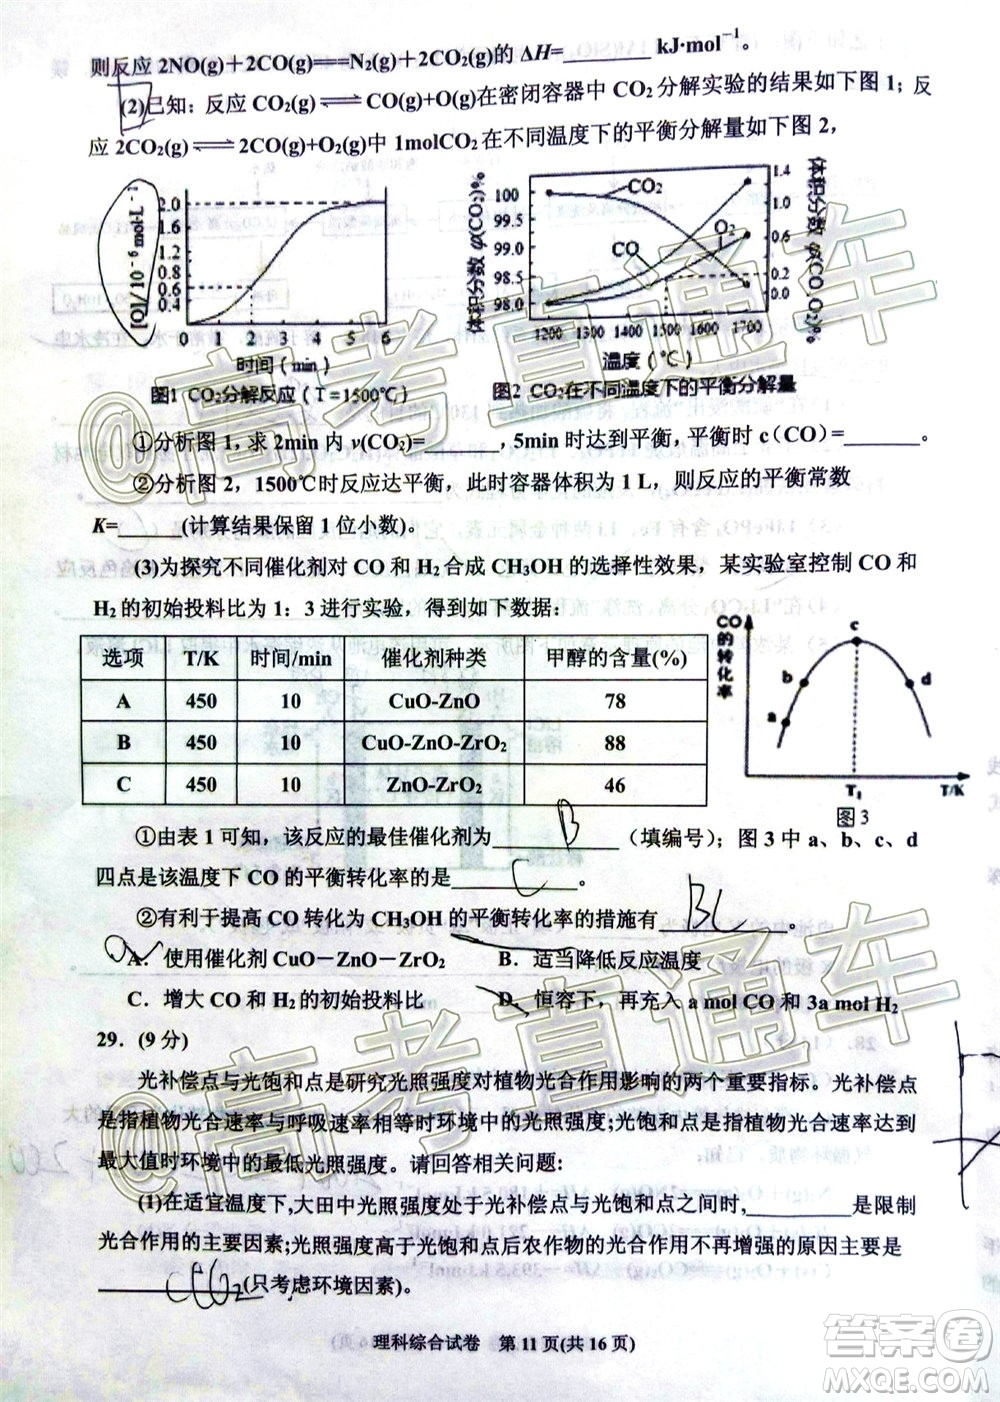 则反应 2NO(g)＋2CO(g)═══N₂(g)＋2CO₂(g)的 ΔH=________ kJ·mol⁻¹。
(2)已知：反应 CO₂(g)⇌CO(g)+O(g)在密闭容器中 CO₂分解实验的结果如下图 1；反
应 2CO₂(g)⇌2CO(g)+O₂(g)中 1molCO₂在不同温度下的平衡分解量如下图 2，
[O]/10⁻⁶mol·L⁻¹
2.0
1.6
1.2
0.8
0.6
0.4
0 1 2 3 4 5 6
时间（min）
图1 CO₂分解反应（T＝1500℃）
体积分数 φ(CO₂)%
100
99.5
99.0
98.5
98.0
CO₂
O₂
CO
1.4
1.0
0.6
0.2
0.0
体积分数 φ(CO,O₂)%
1200 1300 1400 1500 1600 1700
温度（℃）
图2 CO₂在不同温度下的平衡分解量
①分析图 1，求 2min 内 v(CO₂)=________，5min 时达到平衡，平衡时 c（CO）=________。
②分析图 2，1500℃时反应达平衡，此时容器体积为 1 L，则反应的平衡常数
K=______(计算结果保留 1 位小数)。
(3)为探究不同催化剂对 CO 和 H₂ 合成 CH₃OH 的选择性效果，某实验室控制 CO 和
H₂ 的初始投料比为 1：3 进行实验，得到如下数据：
选项 T/K 时间/min 催化剂种类 甲醇的含量(%)
A 450 10 CuO-ZnO 78
B 450 10 CuO-ZnO-ZrO₂ 88
C 450 10 ZnO-ZrO₂ 46
CO的转化率
a
b
c
d
T₁
T/K
图 3
①由表 1 可知，该反应的最佳催化剂为____B____（填编号）；图 3 中 a、b、c、d
四点是该温度下 CO 的平衡转化率的是____C____。
②有利于提高 CO 转化为 CH₃OH 的平衡转化率的措施有 BC 。
A．使用催化剂 CuO－ZnO－ZrO₂ B．适当降低反应温度
C．增大 CO 和 H₂ 的初始投料比 D．恒容下，再充入 a mol CO 和 3a mol H₂
29．(9 分)
光补偿点与光饱和点是研究光照强度对植物光合作用影响的两个重要指标。光补偿点
是指植物光合速率与呼吸速率相等时环境中的光照强度；光饱和点是指植物光合速率达到
最大值时环境中的最低光照强度。请回答相关问题：
(1)在适宜温度下，大田中光照强度处于光补偿点与光饱和点之间时,__________是限制
光合作用的主要因素;光照强度高于光饱和点后农作物的光合作用不再增强的原因主要是
____CO₂(只考虑环境因素)。
理科综合试卷 第 11 页(共 16 页)
@高考直通车
@高考直通车
@高考直通车
答案圈
MXQE.COM